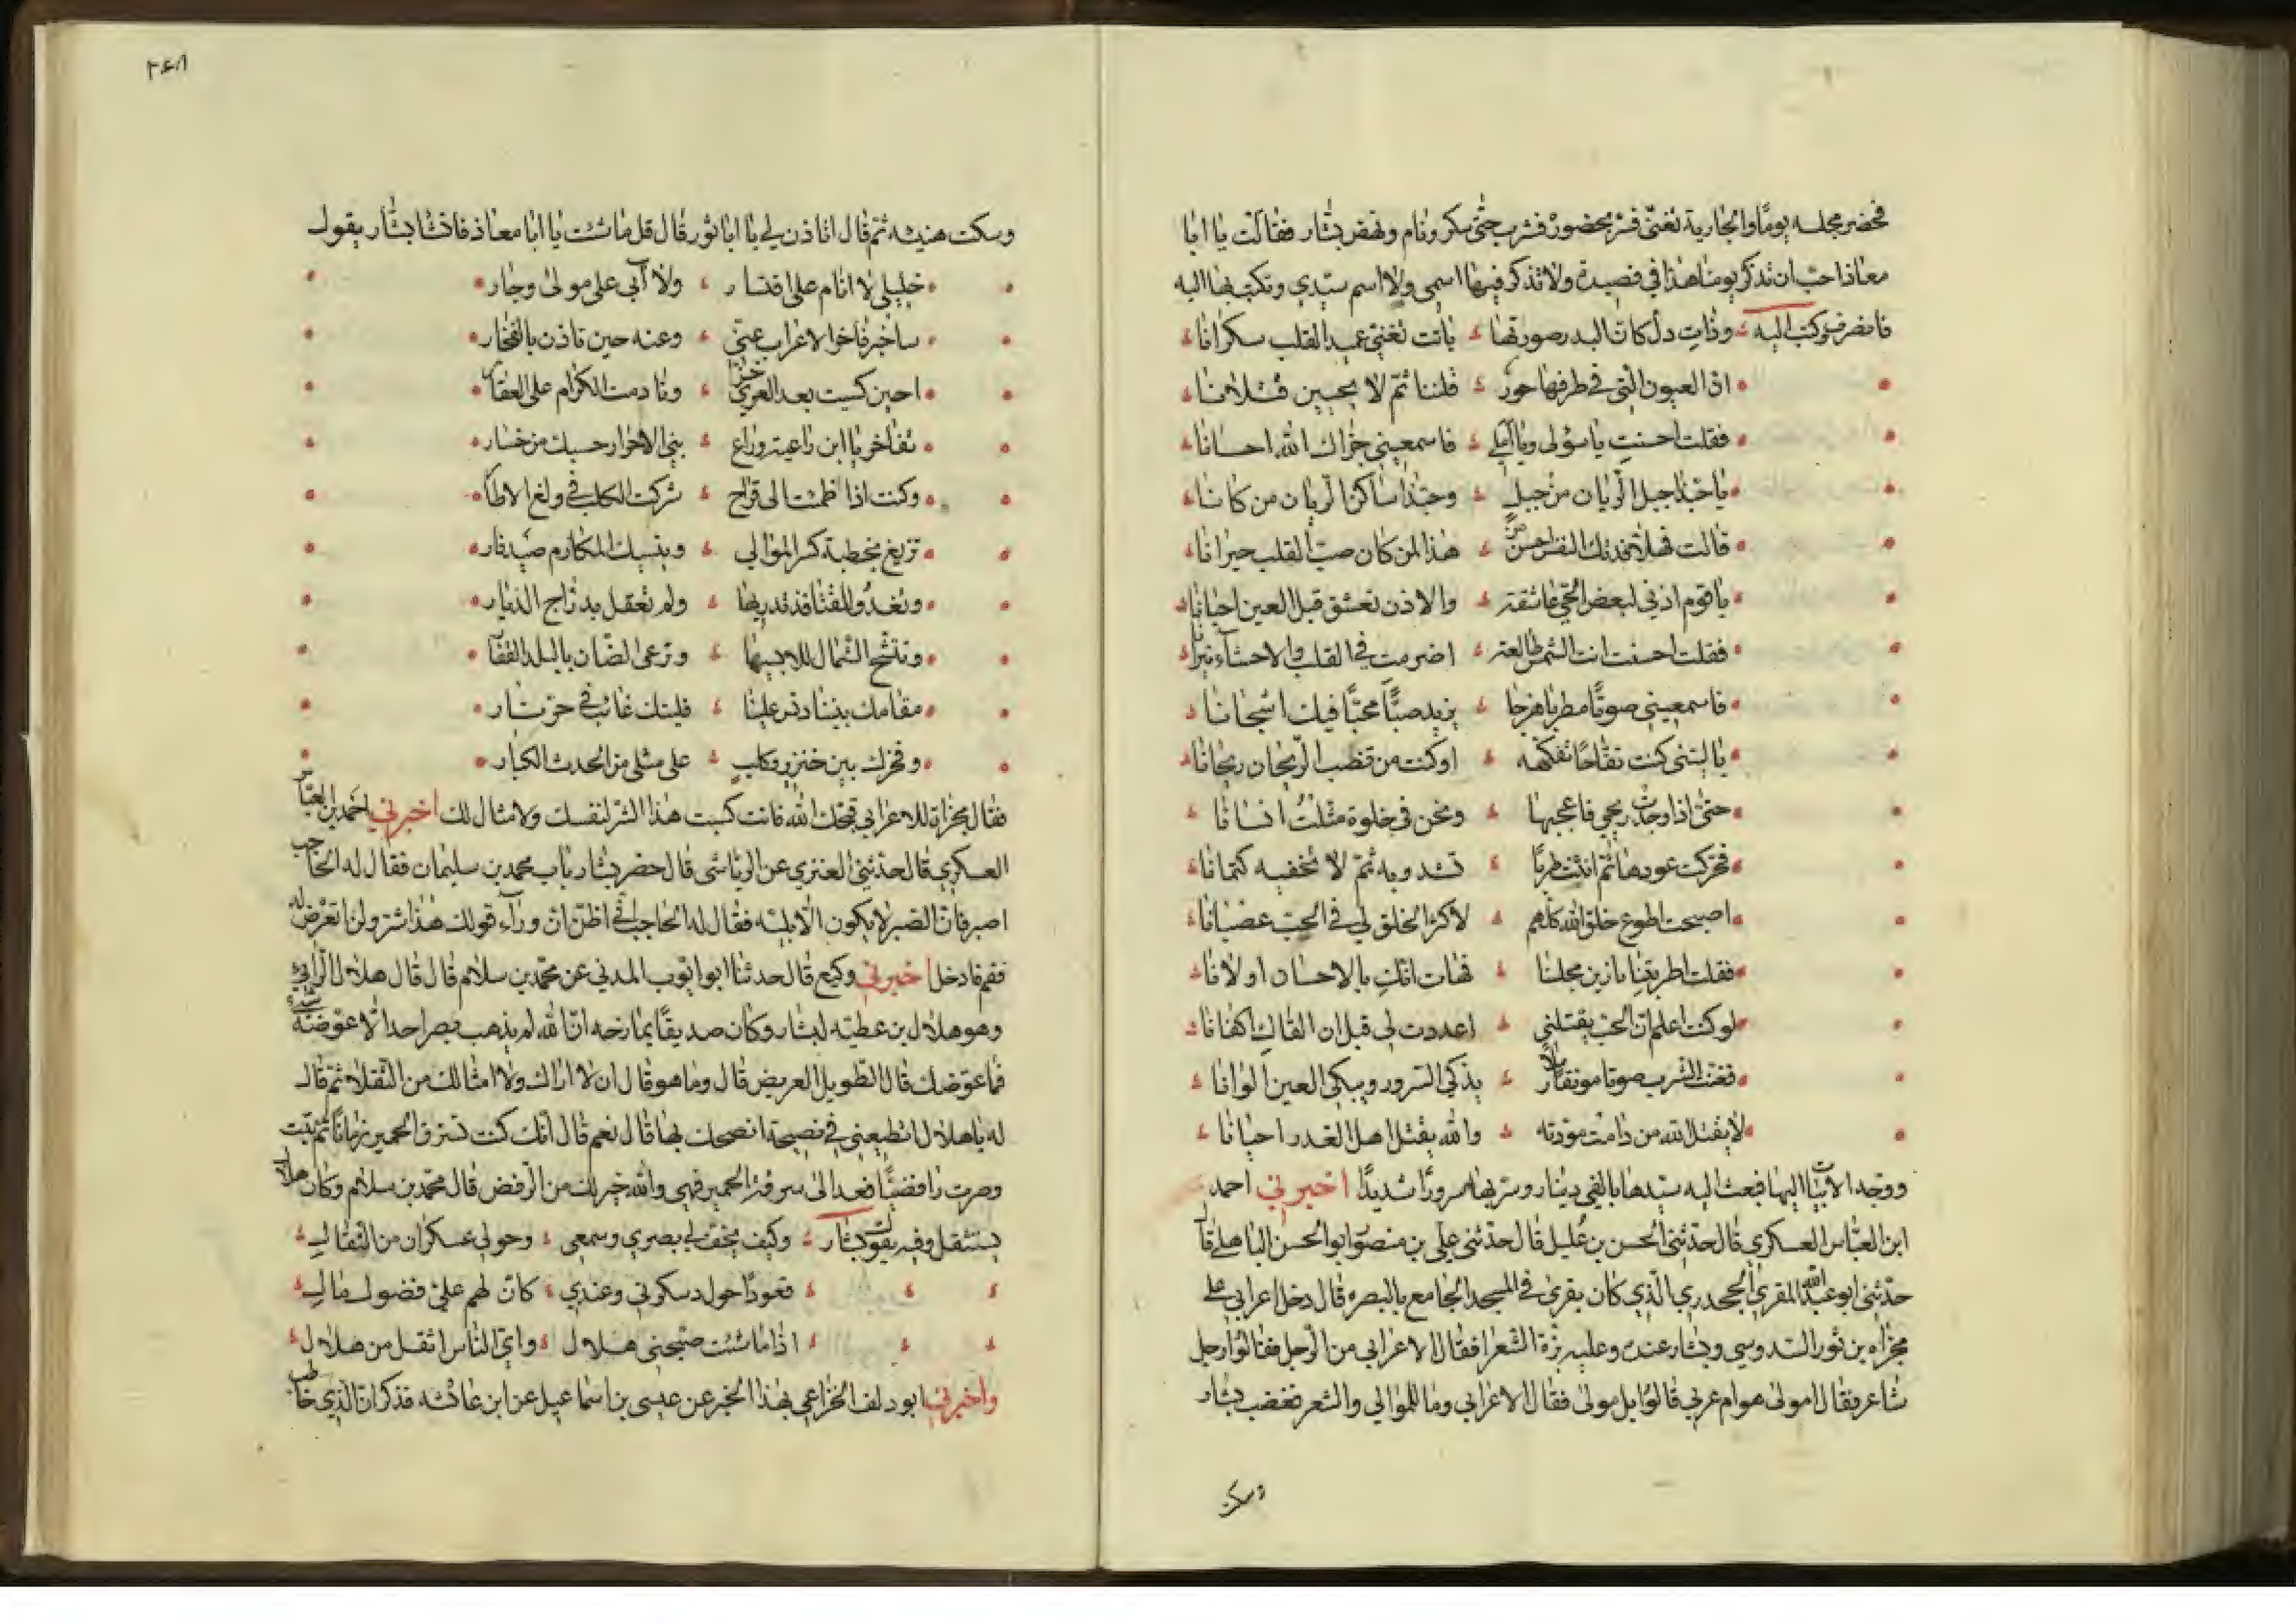 فحضر مجلسه يومًا والجارية تغنّي فسُرّ بحضوره فشرب حتّى سكر ونام ونهض بشّار فقالت يا ابا
معاذ احبّ ان تذكر يومنا هذا في قصيدة ولا تذكر فيها اسمي ولا اسم سيّدي وتكتب بها اليه
فانصرف وكتب اليه وذات دلّ كانّ البدر صورتها باتت تغنّي عميد القلب سكرانا
انّ العيون التي في طرفها حور قتلننا ثمّ لا يحيين قتلانا
فقلت احسنتِ يا سؤلي ويا املي فاسمعيني جزاك الله احسانا
يا حبّذا جبل الرّيان من جبل وحبّذا ساكن الريان من كانا
قالت فهلّا فدتك النفس احسن من هذا لمن كان صبّ القلب حيرانا
يا قوم اذني لبعض الحيّ عاشقة والاذن تعشق قبل العين احيانا
فقلت احسنت انت الشمس طالعة اضرمت في القلب والاحشاء نيرانا
فاسمعيني صوتًا مطربا هزجا يزيد صبًّا محبًّا فيك اشجانا
يا ليتني كنت تفّاحًا تفكّهه او كنت من قضب الرّيحان ريحانا
حتى اذا وجدت ريحي فاعجبها ونحن في خلوة مثّلتُ انسانا
فحرّكت عودها ثم انثنت طربًا تشدو به ثمّ لا تخفيه كتمانا
اصبحت اطوع خلق الله كلّهم لاكثر الخلق لي في الحبّ عصيانا
فقلت اطربتنا يا زين مجلسنا فهات انّك بالاحسان اولانا
لو كنت اعلم انّ الحبّ يقتلني اعددت لي قبل ان القاك اكفانا
فغنّت الشرب صوتا مونقا رملًا يذكي السرور ويبكي العين الوانا
لا يقتل الله من دامت مودّته والله يقتل اهل الغدر احيانا
ووجّه الابيات اليها فبعث اليه سيّدها بالفي دينار وسرّ بها سرورًا شديدًا اخبرني احمد
ابن العبّاس العسكري قال حدّثني الحسن بن عُليل قال حدّثني علي بن منصور ابو الحسن الباهلي قال
حدّثني ابو عبد الله المقري الجحدري الّذي كان يقرئ في المسجد الجامع بالبصره قال دخل اعرابي على
مجزاه بن ثور السدوسي وبشار عنده وعليه بزّة الشعرا فقال الاعرابي من الرّجل فقالوا رجل
شاعر فقال امولى هو ام عربي قالوا بل مولى فقال الاعرابي وما للموالي والشعر فغضب بشّار
وسكت
٢٤٨
وسكت هنيئة ثم قال اتاذن لي يا ابا ثور قال قل ما شئت يا ابا معاذ فانشا بشّار يقول
خليلي لا انام على اقتسار ولا آبى على مولى وجار
ساخبر فاخر الاعراب عنّي وعنه حين تاذن بالفخار
احين كسيت بعد العري خزًا ونادمت الكرام على العقار
تفاخر يا ابن راعية وراع بني الاحرار حسبك من خسار
وكنت اذا ظمئت الى قراح شركت الكلب في ولغ الاطار
تريغ بخطبة كسر الموالي وينسيك المكارم صيد فار
وتغدو للقنافذ تدريها ولم تعقل بدرّاج الديار
وتتّشح الشمال للابسيها وترعى الضان بالبلد القفار
مقامك بيننا دنس علينا فليتك غائب في حرّ نار
وفخرك بين خنزير وكلبٍ على مثلي من الحدث الكبار
فقال مجزاة للاعرابي قبّحك الله فانت كسبت هذا الشرّ لنفسك ولامثالك اخبرني احمد بن العبّاس
العسكري قال حدّثني العنزي عن الرياشي قال حضر بشار باب محمد بن سليمان فقال له الحاجب
اصبر فان الصبر لا يكون الّا بليّه فقال له الحاجب انّي اظن ان وراء قولك هذا شر ولن اتعرّض له
فقم فادخل اخبرني وكيع قال حدثنا ابو ايّوب المدني عن محمّد بن سلام قال قال هلال الرايي
وهو هلال بن عطيّه لبشار وكان صديقًا يمازحه انّ الله لم يذهب بصر احد الّا عوّضه شيئه
فما عوّضك قال الطويل العريض قال وما هو قال ان لا اراك ولا امثالك من الثقلاء ثمّ قال
له يا هلال اتطيعني في نصيحة انصحك بها قال نعم قال انّك كنت تسرق الحمير زمانًا ثمّ تبت
وصرت رافضيًّا فعد الى سرقة الحمير فهي والله خير لك من الرّفض قال محمّد بن سلام وكان هلال
يستثقل وفيه يقول بشار وكيف يخفّ لي بصري وسمعي وحولي عسكران من الثقال
قعودًا حول دسكرتي وعندي كانّ لهم عليّ فضول مال
اذا ما شئت صبّحني هلال وايّ النّاس اثقل من هلال
واخبرني ابو دلف الخزاعي بهذا الخبر عن عيسى بن اسماعيل عن ابن عائشه فذكر ان الذي خاطب